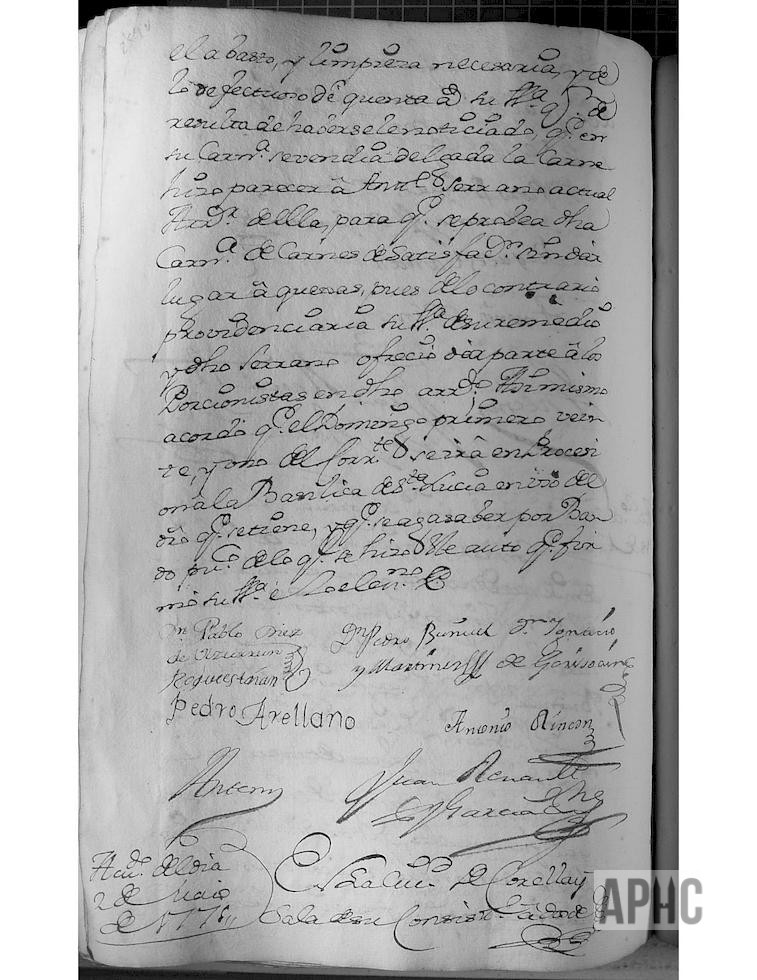 el abasto, y limpieza necesaria, y de
lo defectuoso dé quenta a su Sª y de
resulta de haversele noticiado, qe. en
su Carnª. se vendia delgada la Carne
hizo parecer â Antl. Serrano actual
Arrdr. de ella, para qe. se probea dha
Carnª. de Carnes de satisfaon. sin dar
lugar â quexas, pues de lo contrario
providenciaria su Sª. de su remedio
y dho Serrano ofrecio dar parte â los
Porcionistas en dho arrdo. Asimismo
acordó qe. el Domingo primero vein
te, y uno del corrte. se irâ en Procesi
on â la Basilica de Sta. Lucia en vso del
dro qe. se tiene, y qe. se aga saber por Ban
do puco. de lo qe. se hizo este auto qe. fir
mó su Sª. è Yo el essno.
Dn. Pablo Diez
de Ulzurrun
Reguestrán
Dn. Pedro Buñuel
y Martinez
Dn. Ygnacio
de Goñi
Pedro Arellano
Antonio Rincon
Antemi
Juan Renault
y Garcia
Aud. del dia
2 de Maio
de 1771
En la Ciud. de Corella y
Sala de su Consisto. a dos de
APHC